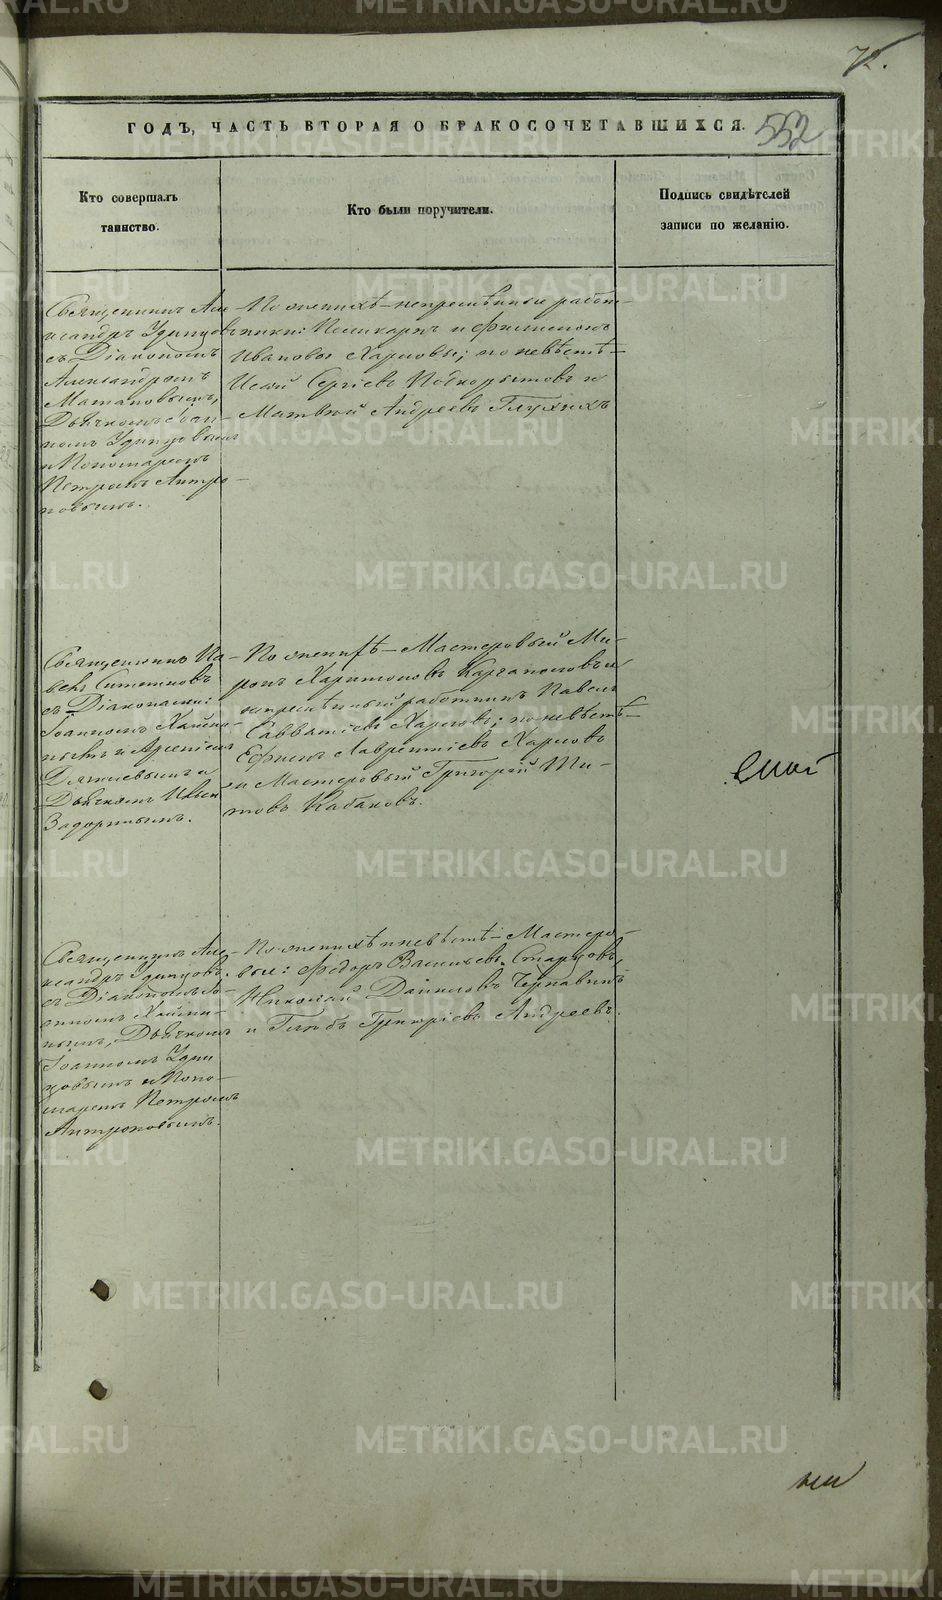 72.
ГОДЪ, ЧАСТЬ ВТОРАЯ О БРАКОСОЧЕТАВШИХСЯ.
552
Кто совершалъ
таинство.
Кто были поручители.
Подпись свидѣтелей
записи по желанію.
Священникъ Але-
ксандръ Удинцовъ
съ Діакономъ
Александромъ
Дьячкомъ Іоан-
номъ Удинцовымъ
и Пономаремъ
Петромъ Антро-
повымъ.
По женихѣ – непремѣнные работ-
ники: Поликарпъ и Филимонъ
Ивановы Харловы; по невѣстѣ –
Исай Сергіевъ Подкорытовъ и
Матвей Андреевъ Глухихъ
Священникъ Па-
велъ
съ Діаконами:
Іоанномъ
и Арсеніемъ
Дьячкомъ
Задоринымъ.
По женихѣ – Мастеровый Ми-
ронъ Харитоновъ Каргаполовъ и
непремѣнный работникъ Павелъ
Савватіевъ Харловъ; по невѣстѣ –
Ефимъ Лаврентіевъ Харловъ
и Мастеровый Григорій Ти-
товъ Кабаковъ.
Священникъ Але-
ксандръ Удинцовъ
съ Діакономъ Іо-
анномъ
Дьячкомъ
Іоанномъ Удин-
цовымъ и Поно-
маремъ Петромъ
Антроповымъ.
По женихѣ и невѣстѣ – Мастеро-
вые: Ѳедоръ Васильевъ Старцовъ,
Николай Даниловъ Чернавинъ
и Глѣбъ Григоріевъ Андреевъ.
METRIKI.GASO-URAL.RU